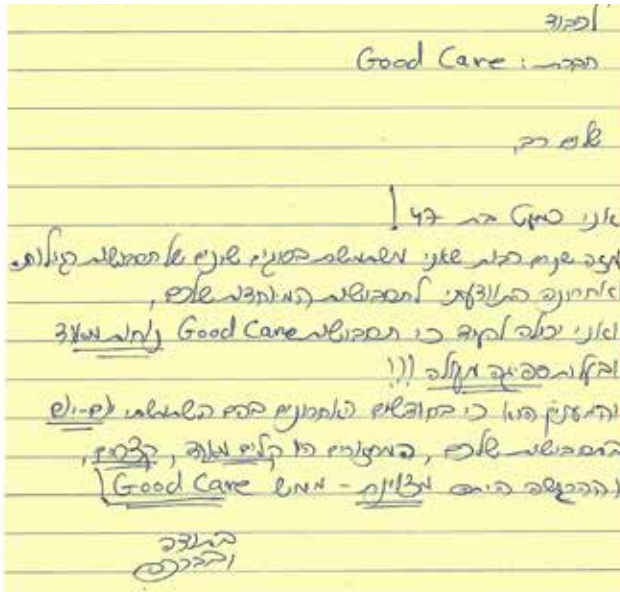 לכבוד
חברת: Good Care
שלום רב,
אני כמעט בת 47!
מזה שנים רבות שאני משתמשת בסוגים שונים של תחבושות רגילות.
אחרונה התוודעתי לתחבושות המיוחדות שלכם,
ואני יכולה להגיד כי תחבושות Good Care נוחות מאוד
ובעלות ספיגה מעולה!!!
והמעניין הוא כי בחודשים האחרונים בהם השתמשתי יום-יום
בתחבושות שלכם, המחזורים היו קלים מאוד, קצרים,
וההרגשה היתה מצוינת - ממש Good Care!
בתודה
ובברכה